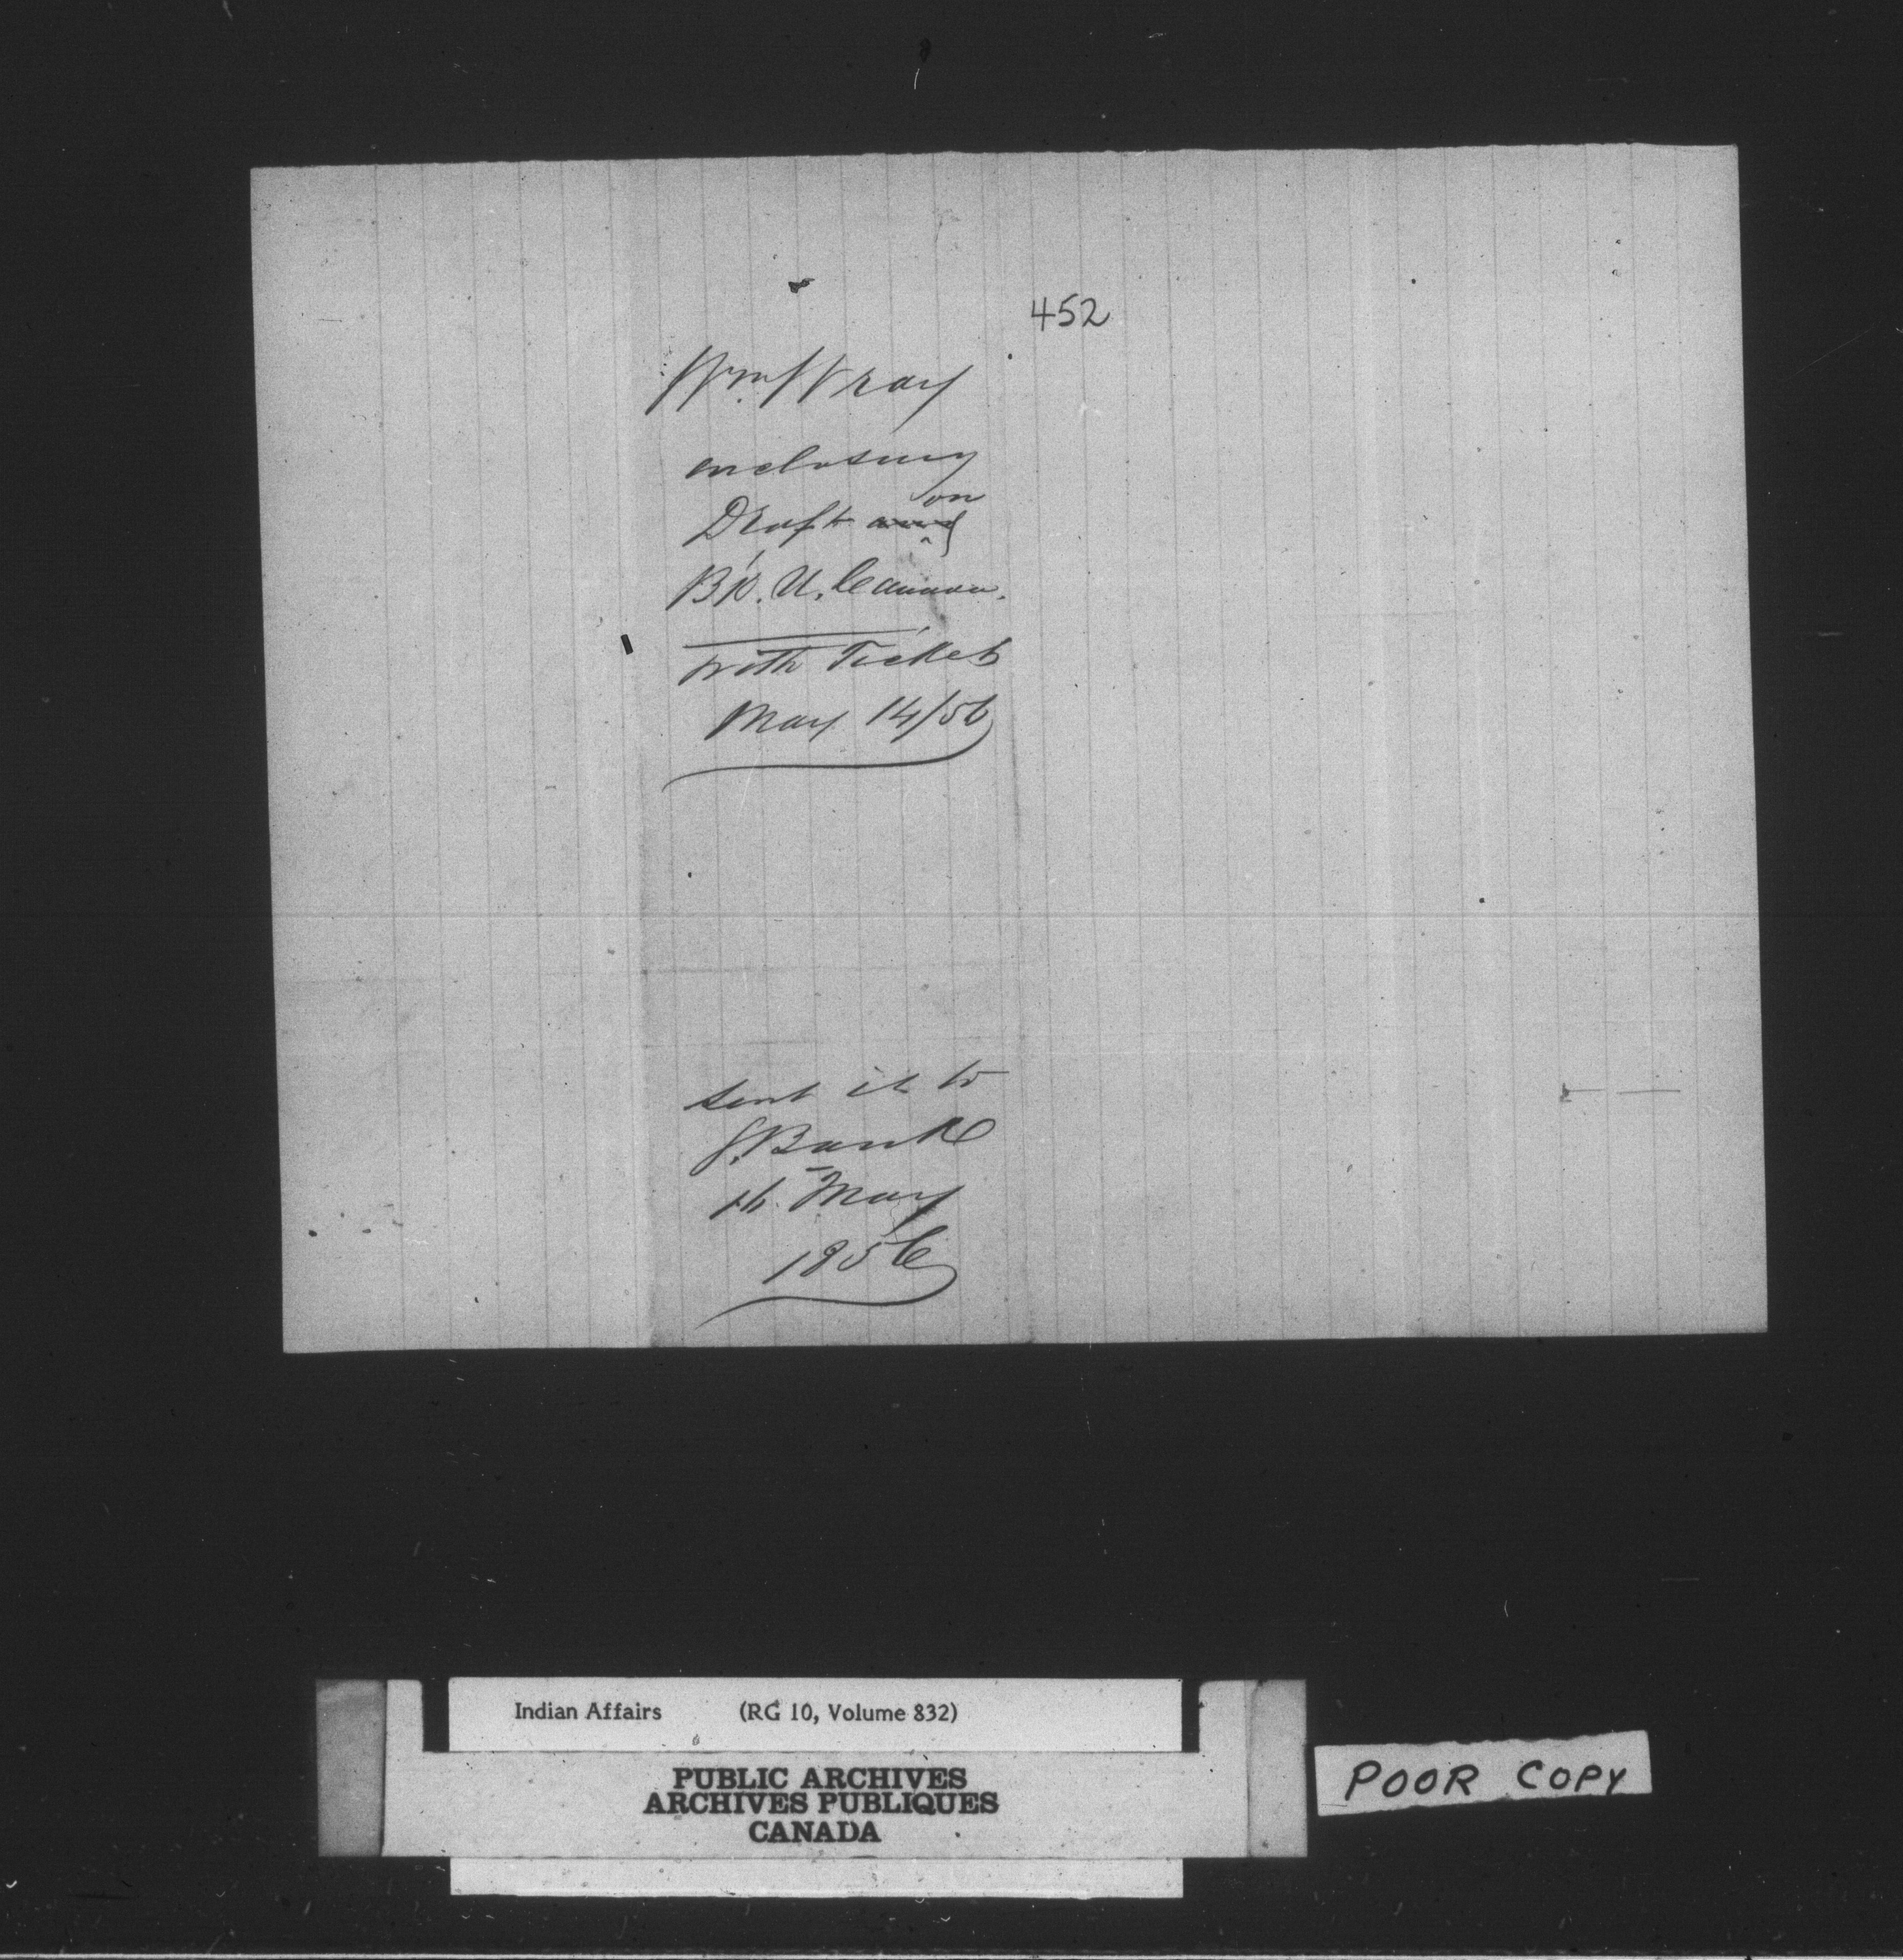 452
Wm. Wray
enclosing
on
Draft and
Bk. U. Canada.
with Ticket
May 14/56
sent it to
Bank
16 May
1856
Indian Affairs (RG 10, Volume 832)
PUBLIC ARCHIVES
ARCHIVES PUBLIQUES
CANADA
POOR COPY